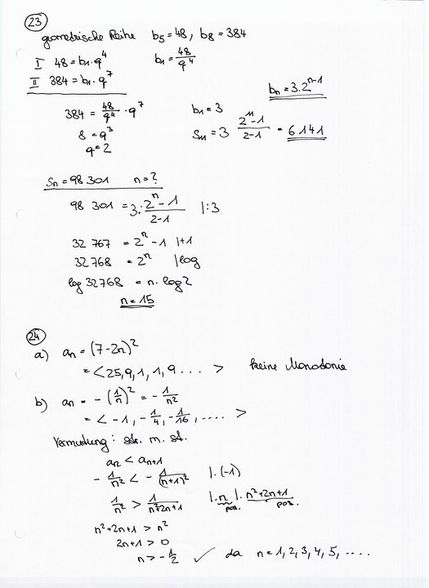 23
geometrische Reihe b₅ = 48, b₈ = 384
I 48 = b₁·q⁴ b₁ = 48/q⁴
II 384 = b₁·q⁷
bₙ = 3·2ⁿ⁻¹
384 = 48/q⁴ · q⁷ b₁ = 3
8 = q³ S₁₁ = 3 (2¹¹-1)/(2-1) = 6141
q = 2
Sₙ = 98 301 n = ?
98 301 = 3·(2ⁿ-1)/(2-1) |:3
32 767 = 2ⁿ-1 |+1
32 768 = 2ⁿ |log
log 32768 = n·log2
n = 15
24
a) aₙ = (7-2n)²
= <25, 9, 1, 1, 9 ... > keine Monotonie
b) aₙ = -(1/n)² = -1/n²
= < -1, -1/4, -1/16, .... >
Vermutung: str. m. st.
aₙ < aₙ₊₁
-1/n² < -1/(n+1)² |·(-1)
1/n² > 1/(n²+2n+1) |·n² pos. |·n²+2n+1 pos.
n²+2n+1 > n²
2n+1 > 0
n > -1/2 ✓ da n = 1, 2, 3, 4, 5, ....